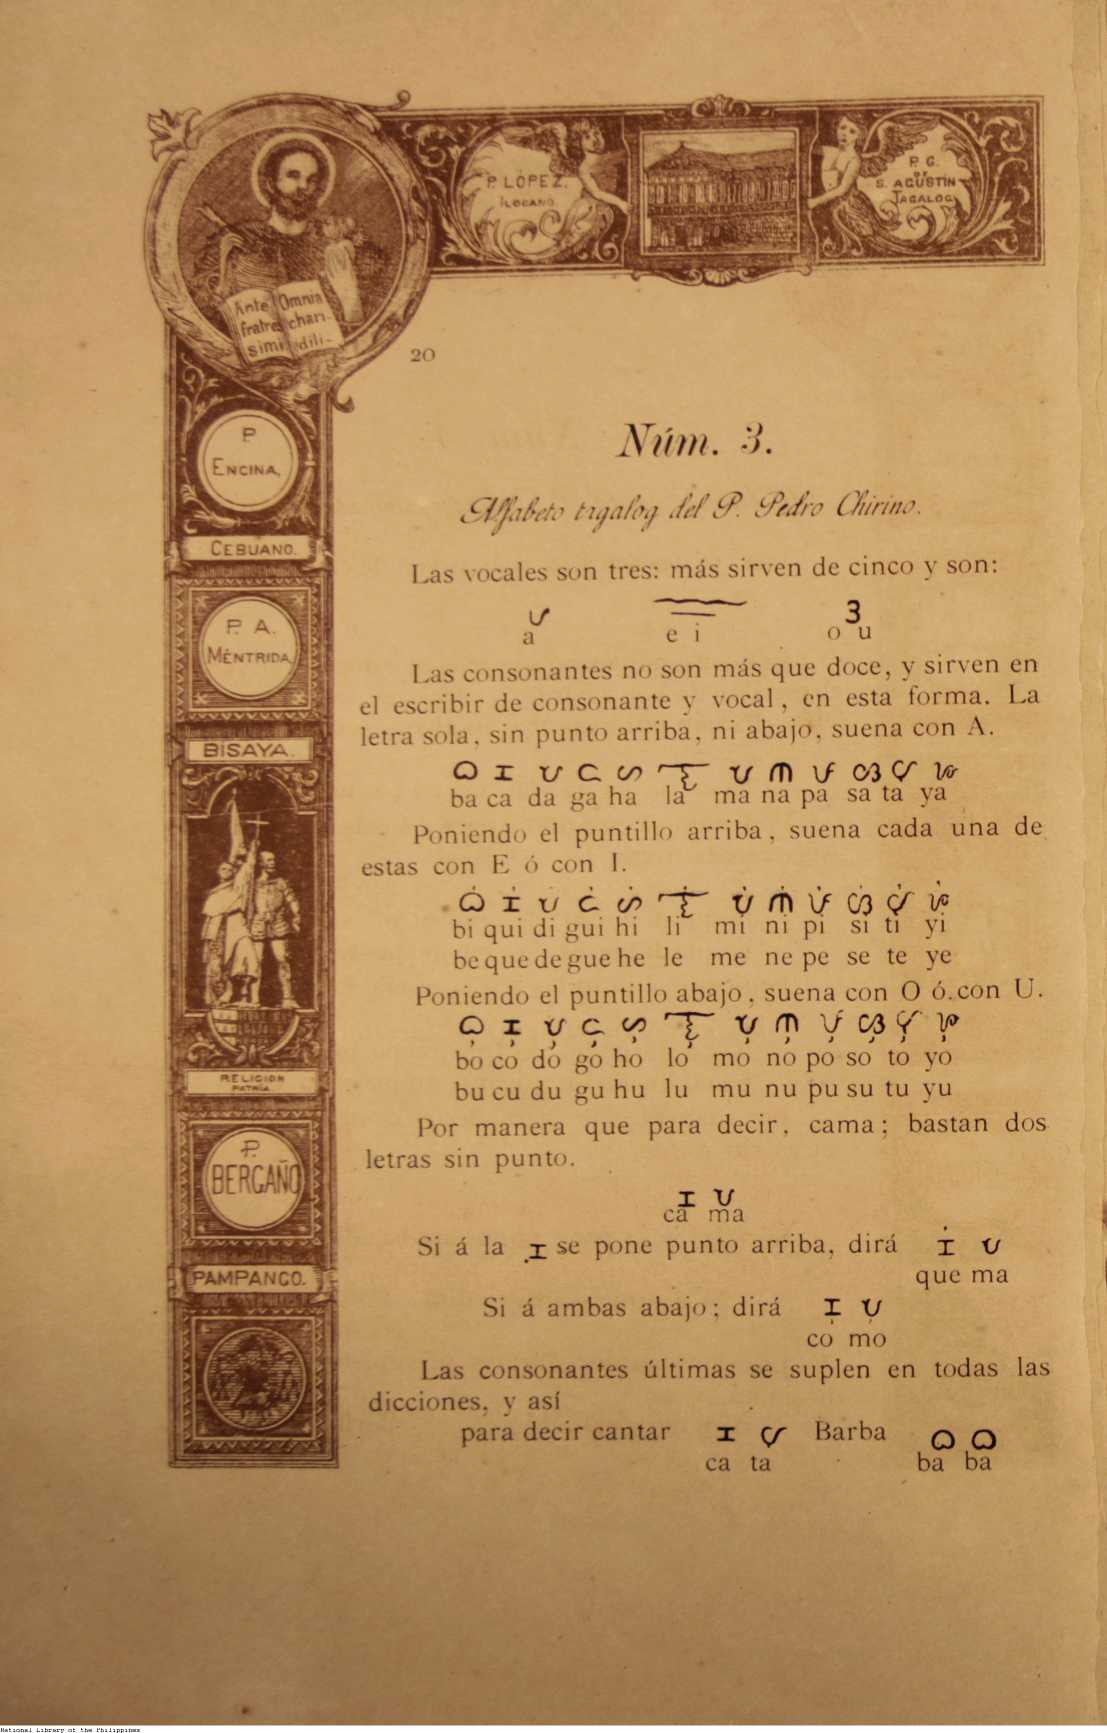 P. LÓPEZ.
ILOCANO.
P. G.
DE
S. AGUSTIN
TAGALOG
Ante Omnia
fratres chari-
simi dili-
20
P.
ENCINA.
CEBUANO.
P. A.
MÉNTRIDA
BISAYA.
RELIGION
PATRIA
P.
BERGAÑO
PAMPANGO.
Núm. 3.
Alfabeto tagalog del P. Pedro Chirino.
Las vocales son tres: más sirven de cinco y son:
ᜀ ᜁ ᜂ
a e i o u
Las consonantes no son más que doce, y sirven en
el escribir de consonante y vocal, en esta forma. La
letra sola, sin punto arriba, ni abajo, suena con A.
ᜊ ᜃ ᜇ ᜄ ᜑ ᜎ ᜋ ᜈ ᜉ ᜐ ᜆ ᜌ
ba ca da ga ha la ma na pa sa ta ya
Poniendo el puntillo arriba, suena cada una de
estas con E ó con I.
ᜊᜒ ᜃᜒ ᜇᜒ ᜄᜒ ᜑᜒ ᜎᜒ ᜋᜒ ᜈᜒ ᜉᜒ ᜐᜒ ᜆᜒ ᜌᜒ
bi qui di gui hi li mi ni pi si ti yi
be que de gue he le me ne pe se te ye
Poniendo el puntillo abajo, suena con O ó con U.
ᜊᜓ ᜃᜓ ᜇᜓ ᜄᜓ ᜑᜓ ᜎᜓ ᜋᜓ ᜈᜓ ᜉᜓ ᜐᜓ ᜆᜓ ᜌᜓ
bo co do go ho lo mo no po so to yo
bu cu du gu hu lu mu nu pu su tu yu
Por manera que para decir, cama; bastan dos
letras sin punto.
ᜃ ᜋ
ca ma
Si á la ᜃ se pone punto arriba, dirá ᜃᜒ ᜋ
que ma
Si á ambas abajo; dirá ᜃᜓ ᜋᜓ
co mo
Las consonantes últimas se suplen en todas las
dicciones, y así
para decir cantar ᜃ ᜆ Barba ᜊ ᜊ
ca ta ba ba
National Library of the Philippines